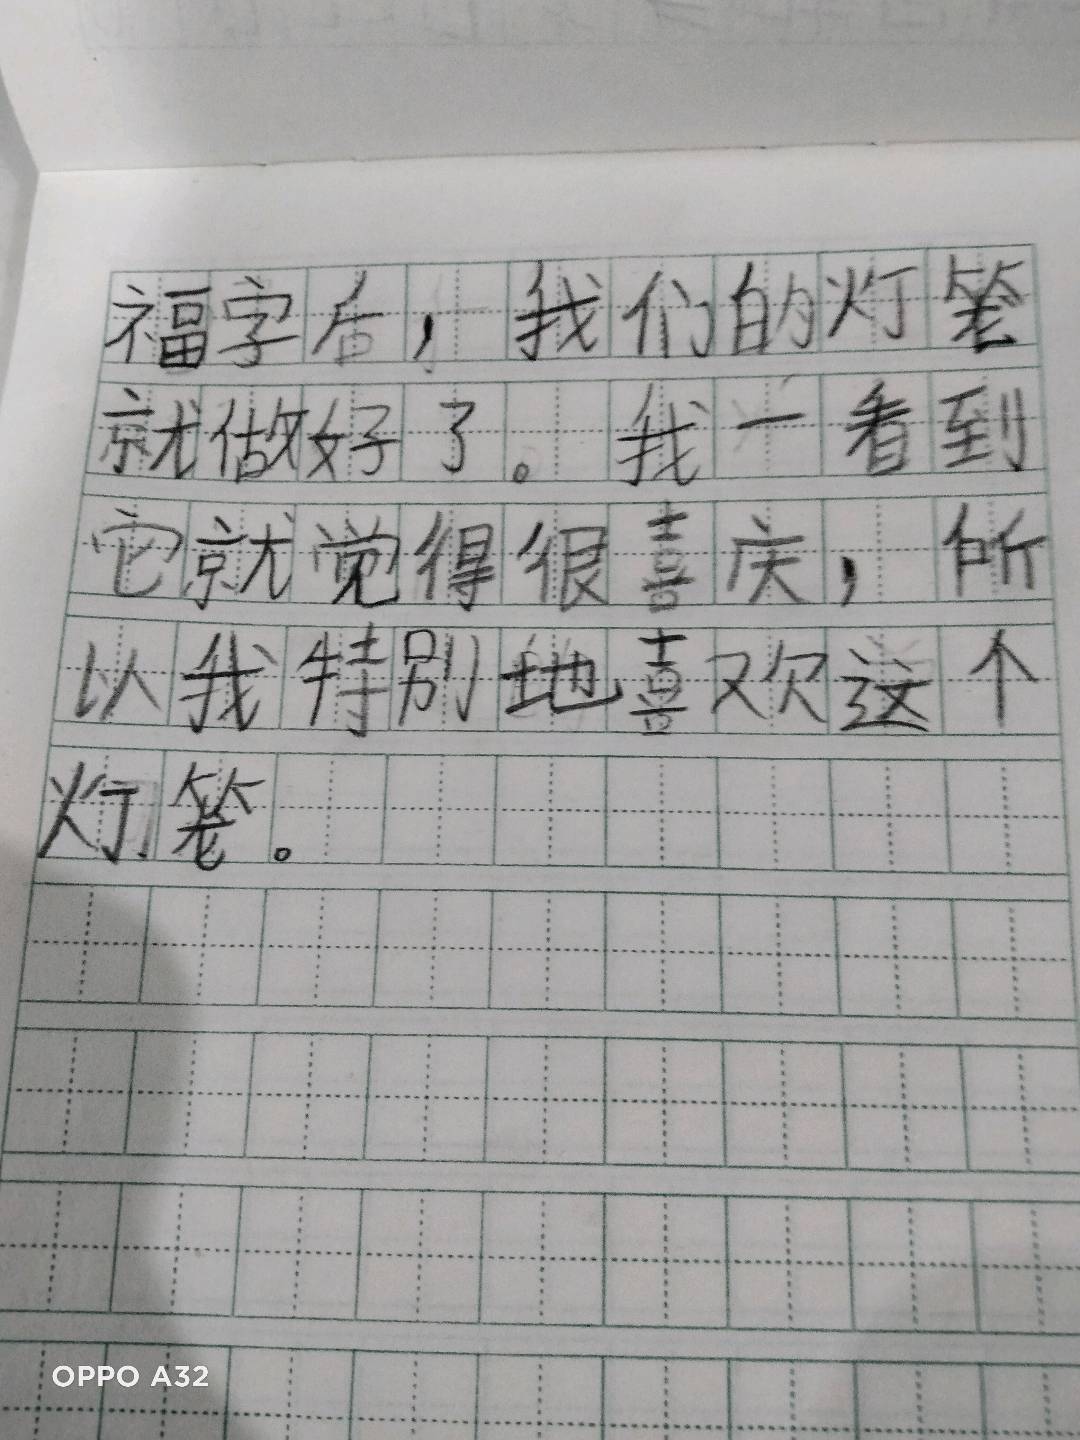 福字后，我们的灯笼
就做好了。我一看到
它就觉得很喜庆，所
以我特别地喜欢这个
灯笼。
OPPO A32